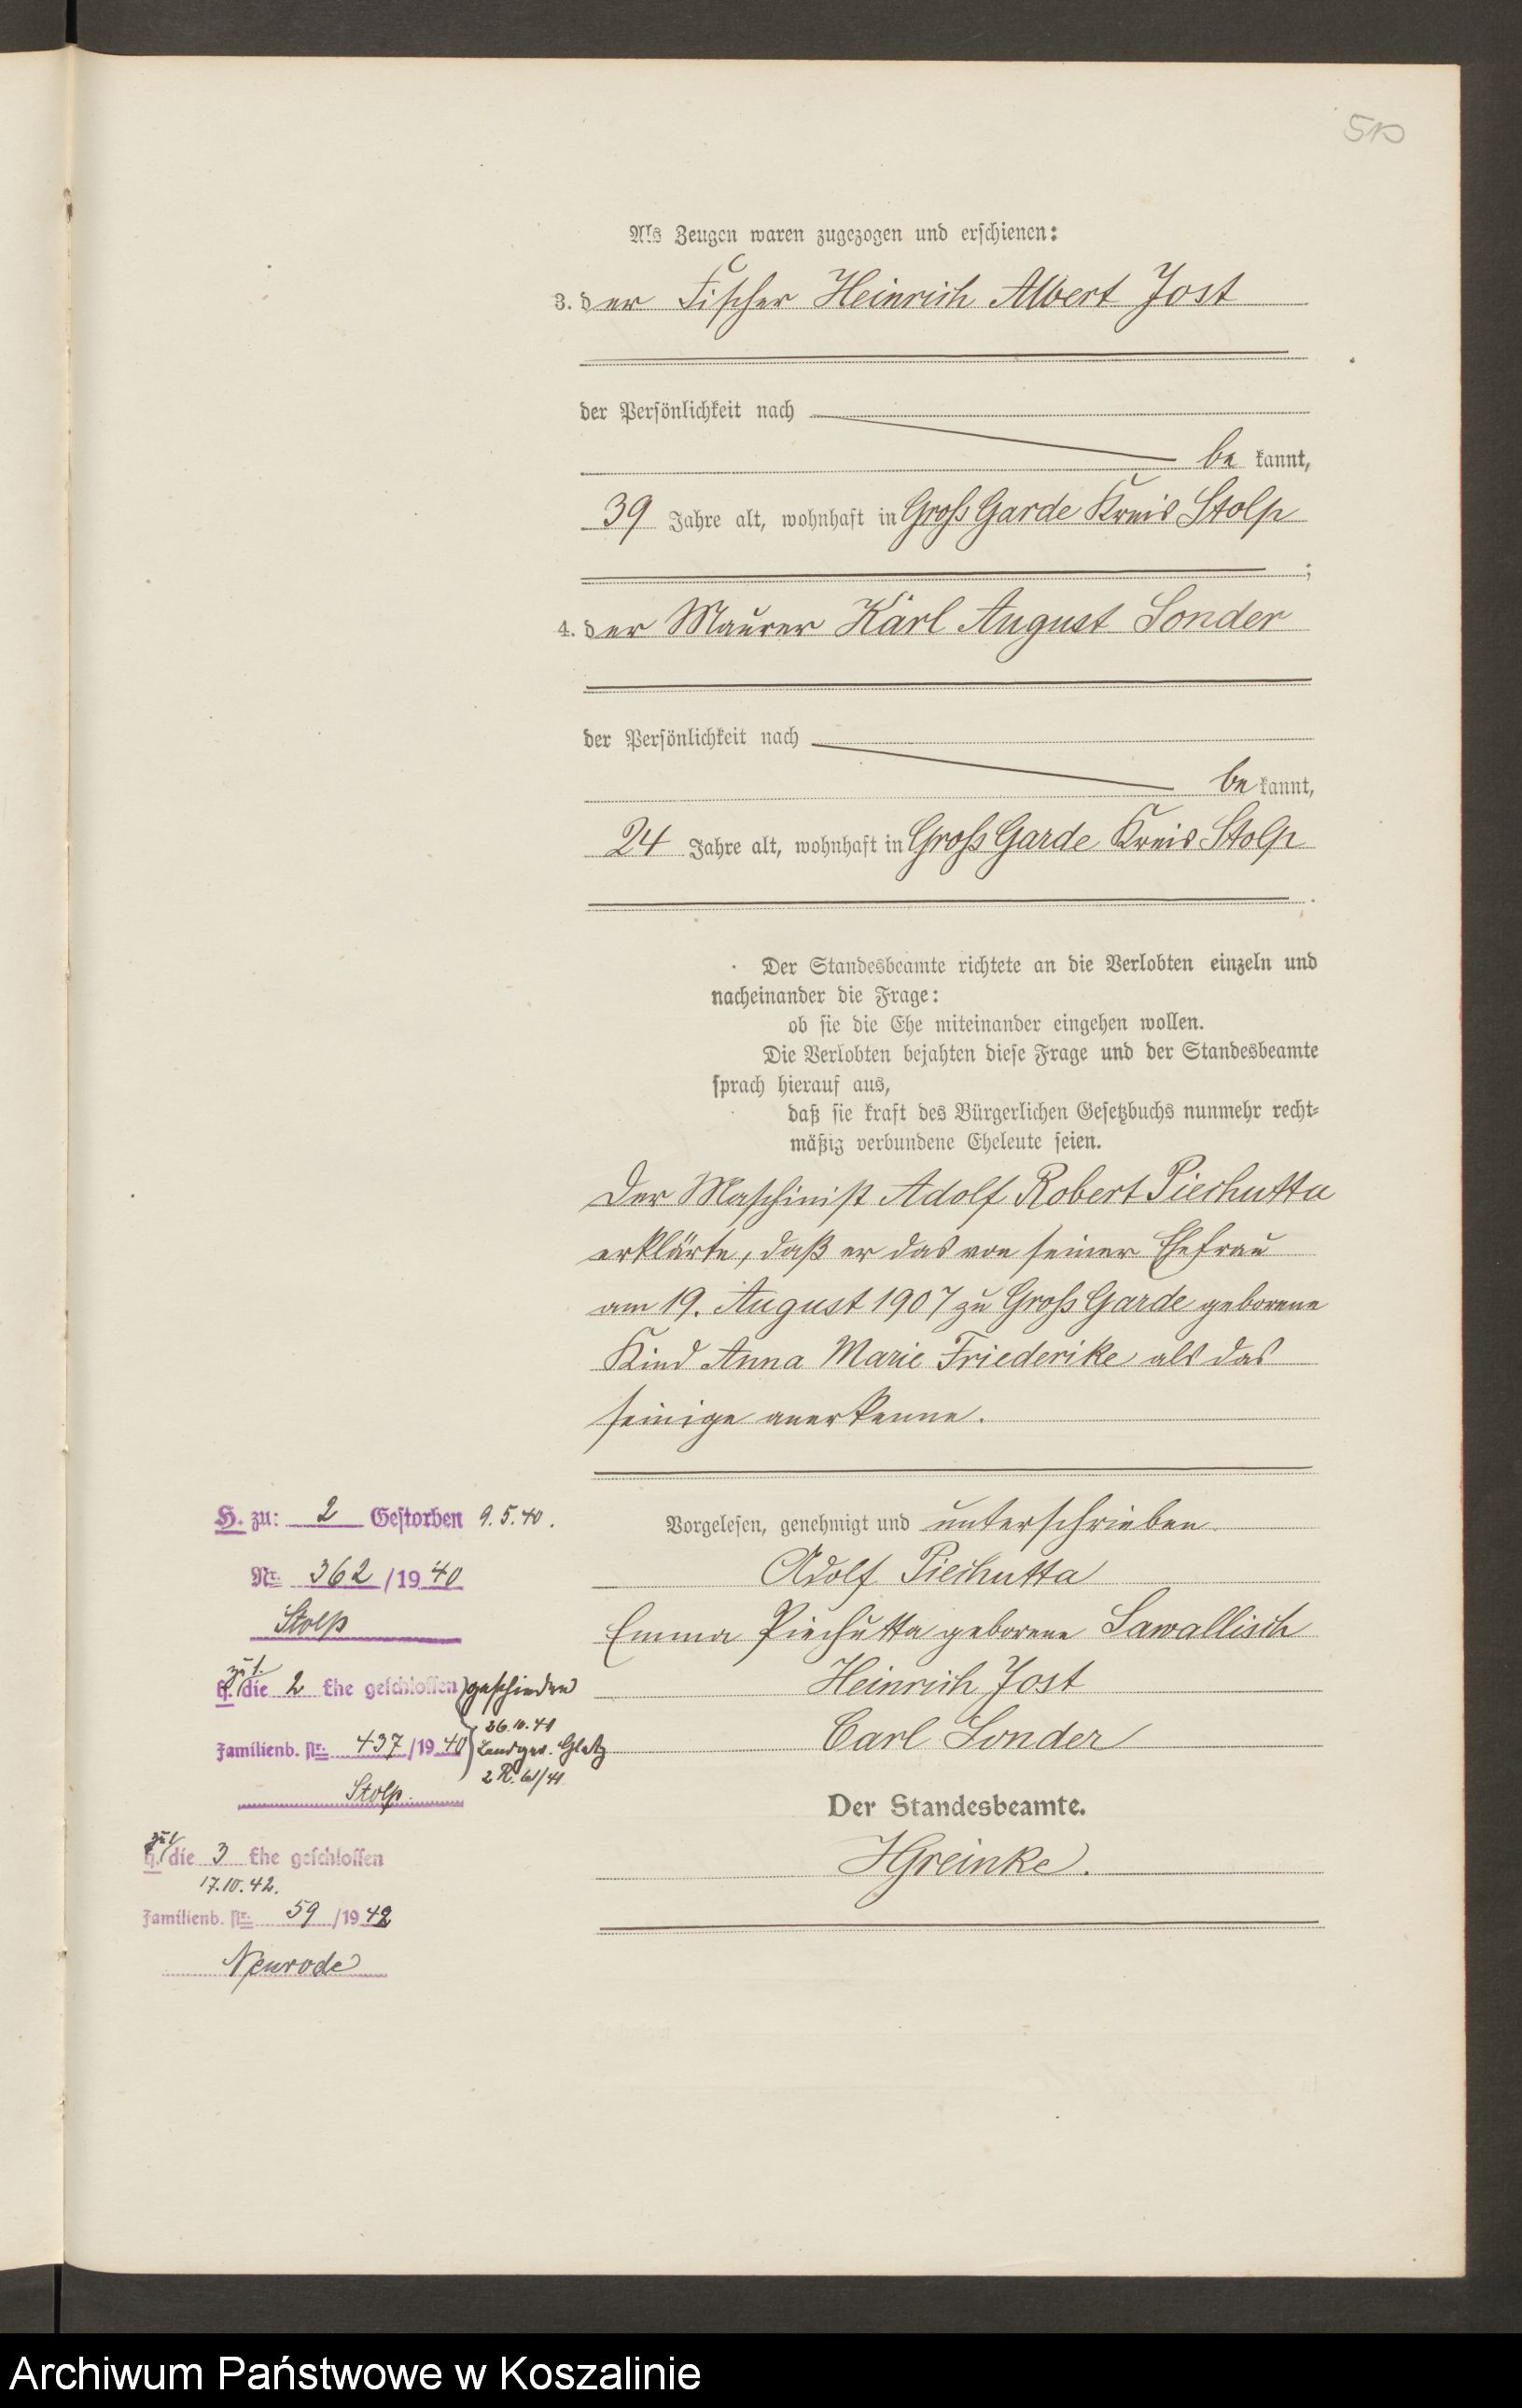 Als Zeugen waren zugezogen und erschienen:
3. der Fischer Heinrich Albert Jost
der Persönlichkeit nach
be kannt,
39 Jahre alt, wohnhaft in Groß Garde Kreis Stolp
;
4. der Maurer Karl August Sonder
der Persönlichkeit nach
be kannt,
24 Jahre alt, wohnhaft in Groß Garde Kreis Stolp
.
Der Standesbeamte richtete an die Verlobten einzeln und
nacheinander die Frage:
ob sie die Ehe miteinander eingehen wollen.
Die Verlobten bejahten diese Frage und der Standesbeamte
sprach hierauf aus,
daß sie kraft des Bürgerlichen Gesetzbuchs nunmehr recht-
mäßig verbundene Eheleute seien.
Der Maschinist Adolf Robert Piechutta
erklärte, daß er das von seiner Ehefrau
am 19. August 1907 zu Groß Garde geborene
Kind Anna Marie Friederike als das
seinige anerkenne.
Vorgelesen, genehmigt und unterschrieben
Adolf Piechutta
Emma Piechutta geborene Sawallisch
Heinrich Jost
Carl Sonder
Der Standesbeamte.
HGreinke.
H. zu: 2 Gestorben 9.5.40.
Nr. 362/1940
Stolp
zu 1.
H. die 2 Ehe geschlossen geschieden
26.10.41
Familienb. Nr. 437/1940 Landger. Glatz
2 R. 61/41
Stolp.
zu 1
H. die 3 Ehe geschlossen
17.10.42.
Familienb. Nr. 59/1942
Neurode
Archiwum Państwowe w Koszalinie